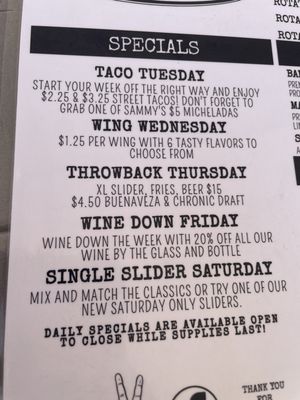 ROTA
ROTA
ROTA
SPECIALS
TACO TUESDAY
START YOUR WEEK OFF THE RIGHT WAY AND ENJOY
$2.25 & $3.25 STREET TACOS! DON'T FORGET TO
GRAB ONE OF SAMMY'S $5 MICHELADAS
WING WEDNESDAY
$1.25 PER WING WITH 6 TASTY FLAVORS TO
CHOOSE FROM
THROWBACK THURSDAY
XL SLIDER, FRIES, BEER $15
$4.50 BUENAVEZA & CHRONIC DRAFT
WINE DOWN FRIDAY
WINE DOWN THE WEEK WITH 20% OFF ALL OUR
WINE BY THE GLASS AND BOTTLE
SINGLE SLIDER SATURDAY
MIX AND MATCH THE CLASSICS OR TRY ONE OF OUR
NEW SATURDAY ONLY SLIDERS.
DAILY SPECIALS ARE AVAILABLE OPEN
TO CLOSE WHILE SUPPLIES LAST!
THANK YOU
FOR